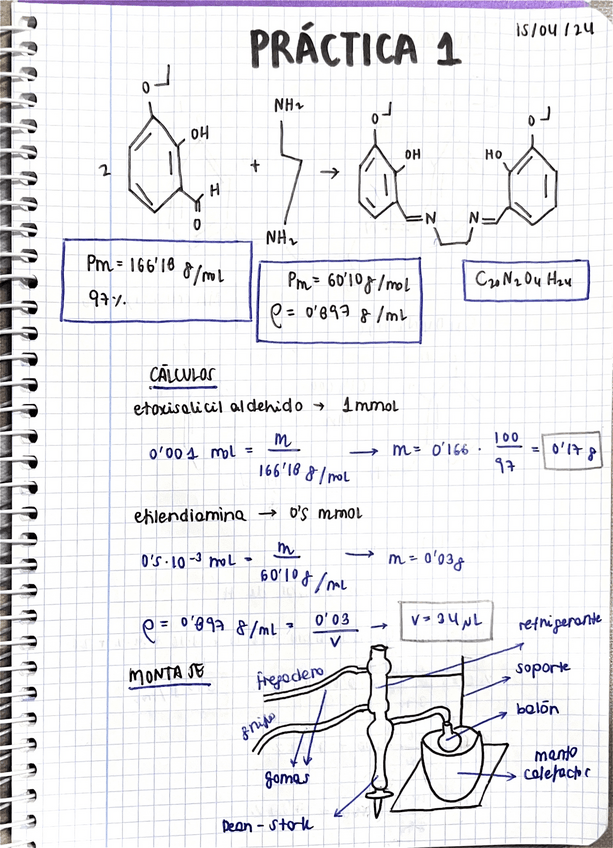 15/04/24
PRÁCTICA 1
O
OH
H
O
2
+
NH2
NH2
→
O
OH
N
O
HO
N
Pm = 166'18 g/mol
97%
Pm = 60'10 g/mol
ρ = 0'897 g/mL
C20N2O4H24
CÁLCULOS
etoxisalicilaldehido → 1mmol
0'001 mol = m / 166'18 g/mol → m = 0'166 · 100/97 = 0'17 g
etilendiamina → 0's mmol
0's·10⁻³ mol = m / 60'10 g/mol → m = 0'03g
ρ = 0'897 g/mL = 0'03 / V → V = 34 μL
MONTAJE
fregadero
grifo
gomas
Dean-stork
refrigerante
soporte
balón
manto
calefactor